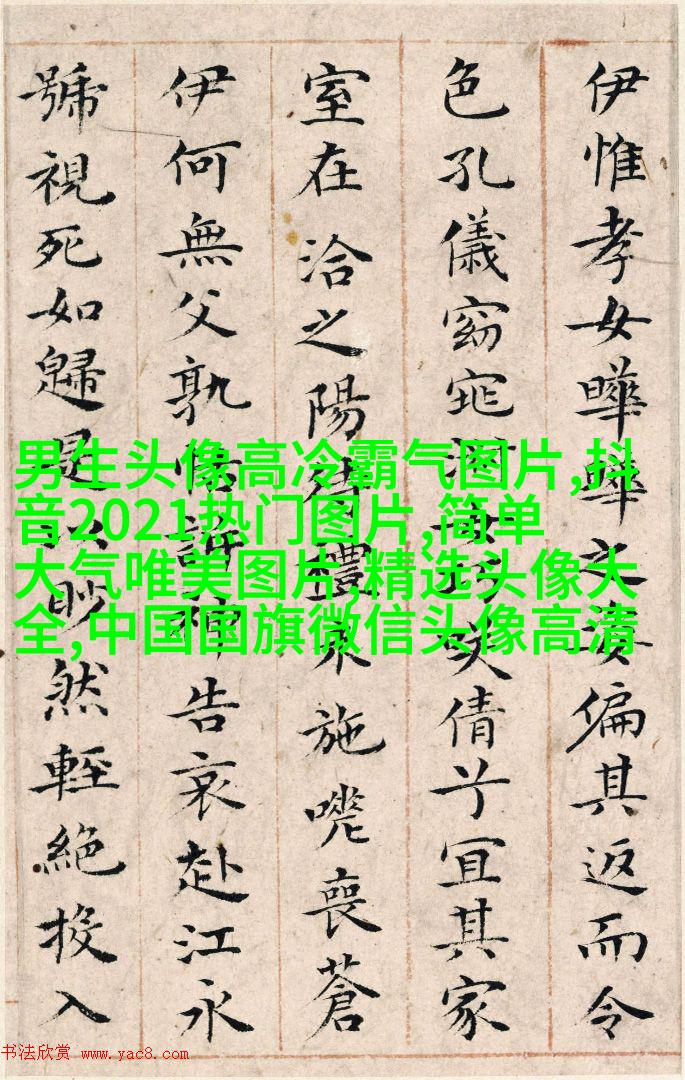 伊惟孝女曄曄之姿偏其返而令
色孔儀窈窕淑女巧咲倩兮宜其家
室在洽之陽待禮未施嗟喪蒼
伊何無父孰怙訴神告哀赴江永
號視死如歸是以眇然輕絕投入
男生头像高冷霸气图片,抖
音2021热门图片,简单
大气唯美图片,精选头像大
全,中国国旗微信头像高清
书法欣赏 www.yac8.com